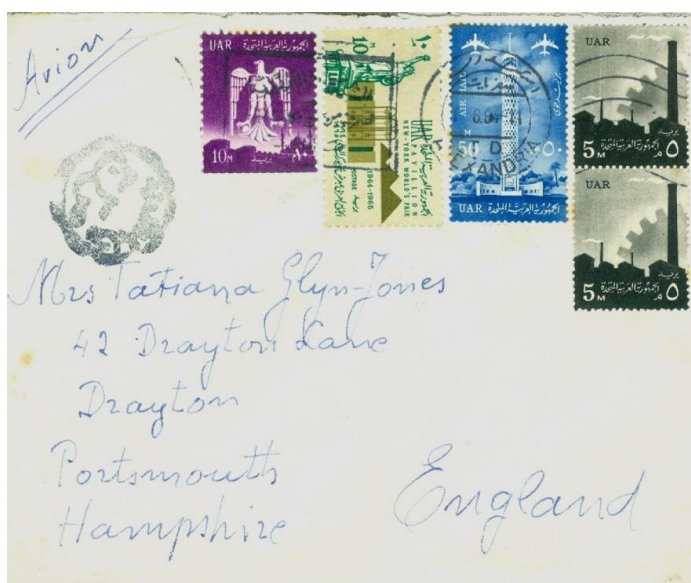 Avion
UAR الجمهورية العربية المتحدة
10M بريد ١٠
10M ١٠م
PAVILLION
NEW YORK WORLD'S FAIR
1964-1965
POSTAGE
AIR MAIL
50 M ٥٠
UAR الجمهورية العربية المتحدة
ALEXANDRIA
D
UAR
بريد
5M الجمهورية العربية المتحدة ٥م
UAR
بريد
5M الجمهورية العربية المتحدة ٥م
Mrs Tatiana Glyn-Jones
42 Drayton Lane
Drayton
Portsmouth
Hampshire
England